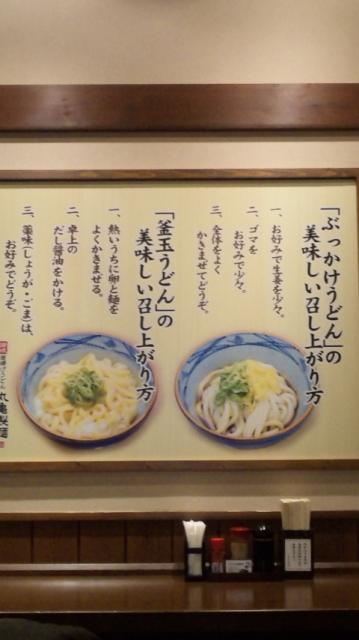 「ぶっかけうどん」の
美味しい召し上がり方
一、お好みで生姜を少々。
二、ゴマを
お好みで少々。
三、全体をよく
かきまぜてどうぞ。
「釜玉うどん」の
美味しい召し上がり方
一、熱いうちに卵と麺を
よくかきまぜる。
二、卓上の
だし醤油をかける。
三、薬味(しょうが・ごま)は、
お好みでどうぞ。
丸亀製麺